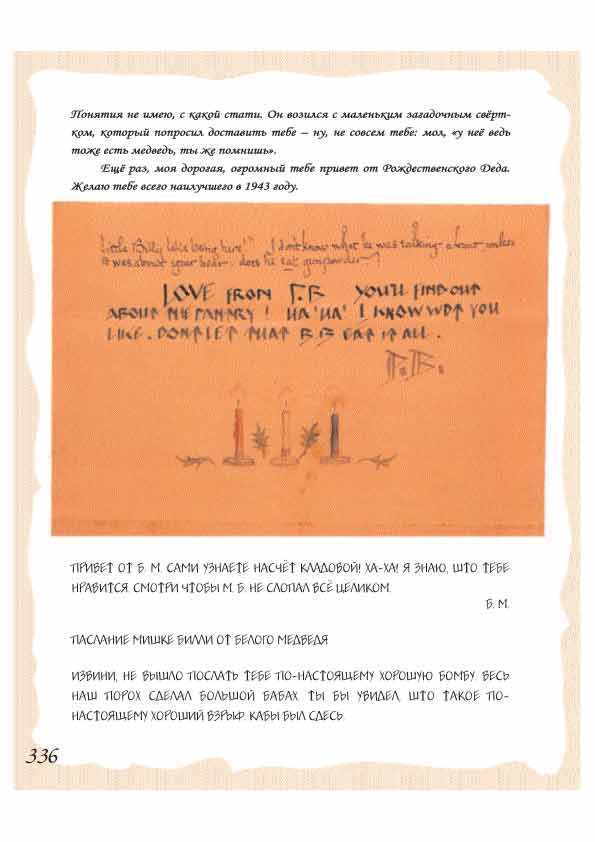 Понятия не имею, с какой стати. Он возился с маленьким загадочным свёрт-
ком, который попросил доставить тебе – ну, не совсем тебе: мол, «у неё ведь
тоже есть медведь, ты же помнишь».
Ещё раз, моя дорогая, огромный тебе привет от Рождественского Деда.
Желаю тебе всего наилучшего в 1943 году.
little Billy like being here!" I don't know what he was talking about, unless
it was about your bear: does he eat gunpowder?
LOVE FROM P.B YOU'LL FIND OUT
ABOUT THE PANTRY! HA! HA! I KNOW WOT YOU
LIKE. DONT LET THAT B.B EAT IT ALL.
P.B.
ПРИВЕТ ОТ Б. М. САМИ УЗНАЕТЕ НАСЧЁТ КЛАДОВОЙ! ХА-ХА! Я ЗНАЮ, ШТО ТЕБЕ
НРАВИТСЯ. СМОТРИ ЧТОБЫ М. Б. НЕ СЛОПАЛ ВСЁ ЦЕЛИКОМ.
Б. М.
ПАСЛАНИЕ МИШКЕ БИЛЛИ ОТ БЕЛОГО МЕДВЕДЯ
ИЗВИНИ, НЕ ВЫШЛО ПОСЛАТЬ ТЕБЕ ПО-НАСТОЯЩЕМУ ХОРОШУЮ БОМБУ. ВЕСЬ
НАШ ПОРОХ СДЕЛАЛ БОЛЬШОЙ БАБАХ. ТЫ БЫ УВИДЕЛ, ШТО ТАКОЕ ПО-
НАСТОЯЩЕМУ ХОРОШИЙ ВЗРЫФ, КАБЫ БЫЛ СДЕСЬ.
336